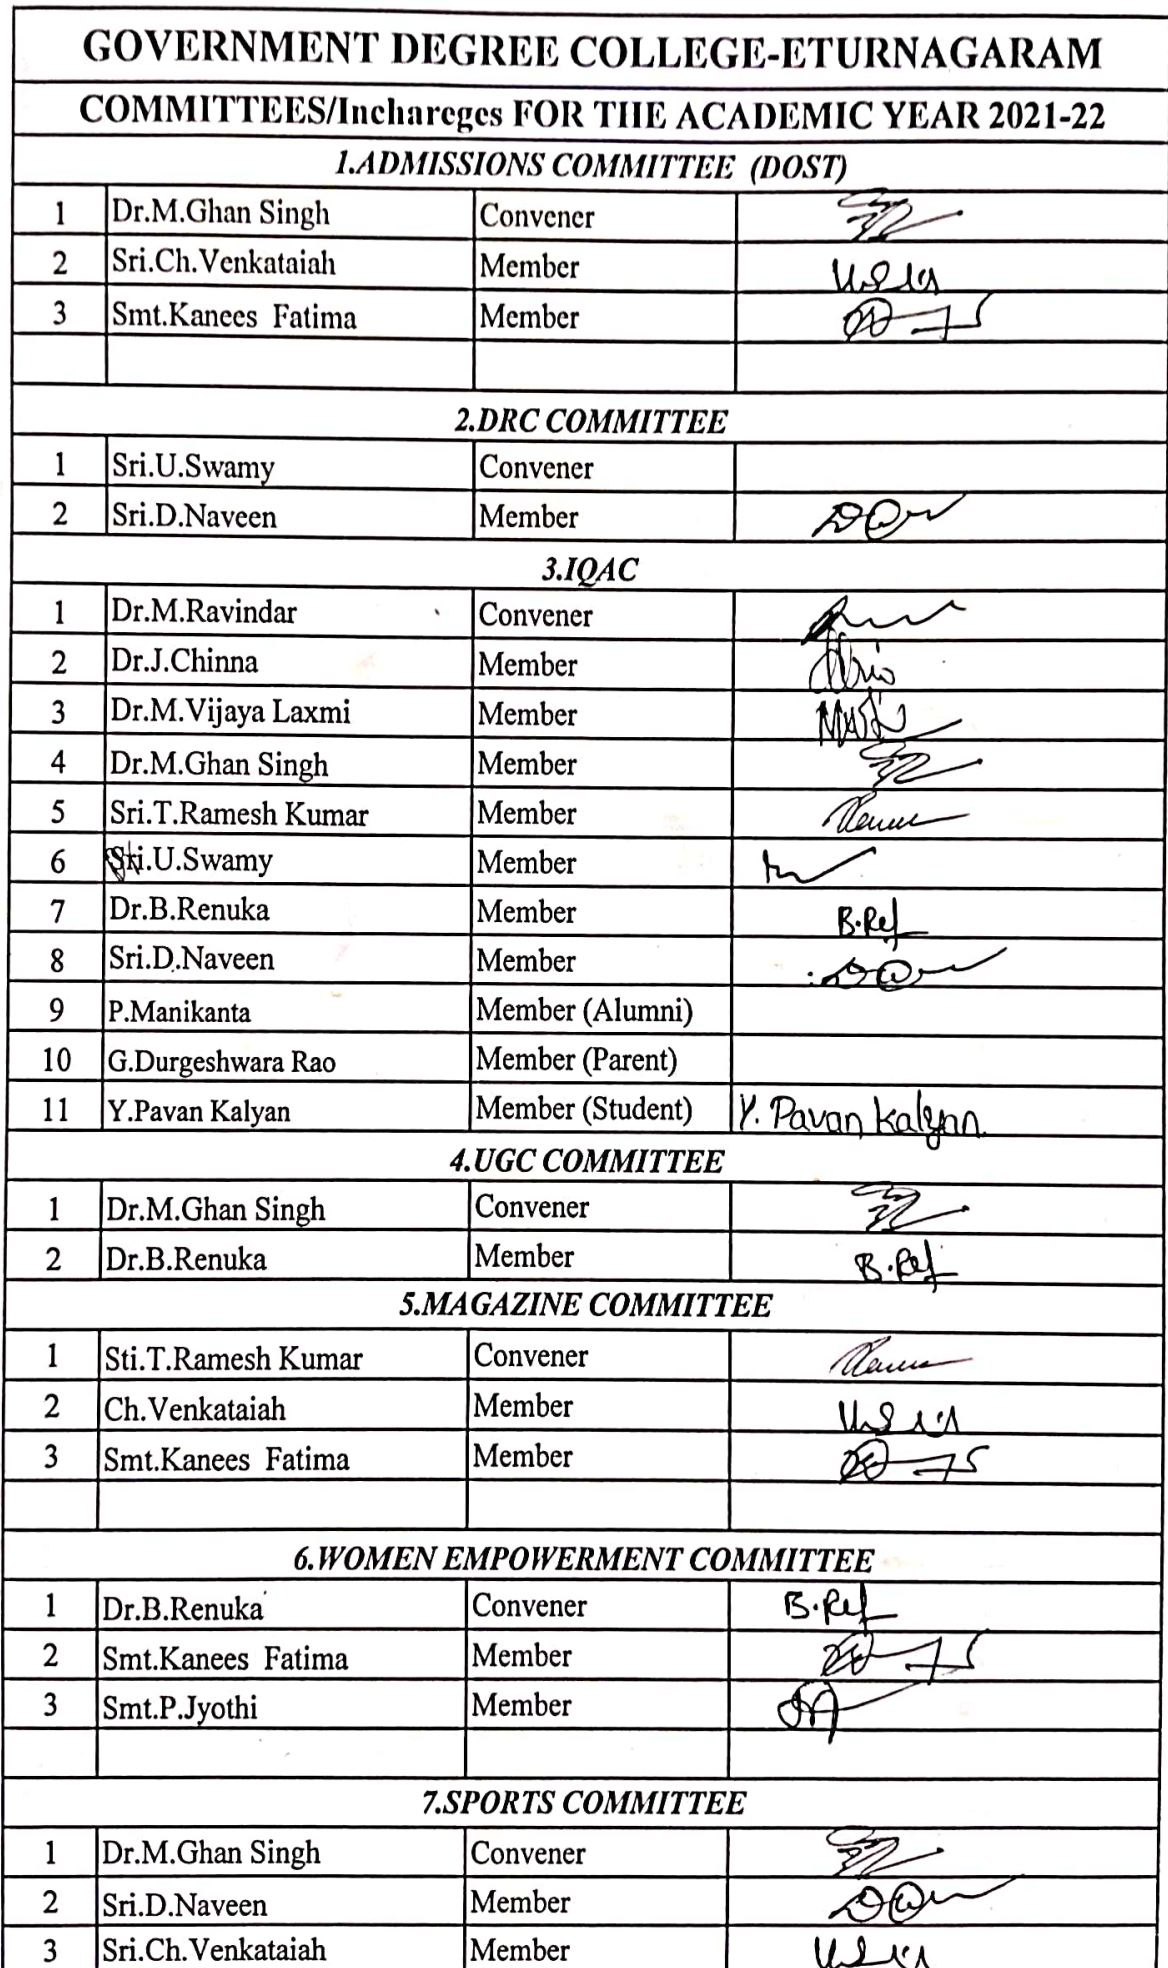 GOVERNMENT DEGREE COLLEGE-ETURNAGARAM
COMMITTEES/Inchareges FOR THE ACADEMIC YEAR 2021-22
1.ADMISSIONS COMMITTEE (DOST)
1 Dr.M.Ghan Singh Convener
2 Sri.Ch.Venkataiah Member
3 Smt.Kanees Fatima Member
2.DRC COMMITTEE
1 Sri.U.Swamy Convener
2 Sri.D.Naveen Member
3.IQAC
1 Dr.M.Ravindar Convener
2 Dr.J.Chinna Member
3 Dr.M.Vijaya Laxmi Member
4 Dr.M.Ghan Singh Member
5 Sri.T.Ramesh Kumar Member
6 Sri.U.Swamy Member
7 Dr.B.Renuka Member B.Ref
8 Sri.D.Naveen Member
9 P.Manikanta Member (Alumni)
10 G.Durgeshwara Rao Member (Parent)
11 Y.Pavan Kalyan Member (Student) Y. Pavan Kalyan.
4.UGC COMMITTEE
1 Dr.M.Ghan Singh Convener
2 Dr.B.Renuka Member B.Ref
5.MAGAZINE COMMITTEE
1 Sti.T.Ramesh Kumar Convener
2 Ch.Venkataiah Member
3 Smt.Kanees Fatima Member
6.WOMEN EMPOWERMENT COMMITTEE
1 Dr.B.Renuka Convener B.Ref
2 Smt.Kanees Fatima Member
3 Smt.P.Jyothi Member
7.SPORTS COMMITTEE
1 Dr.M.Ghan Singh Convener
2 Sri.D.Naveen Member
3 Sri.Ch.Venkataiah Member